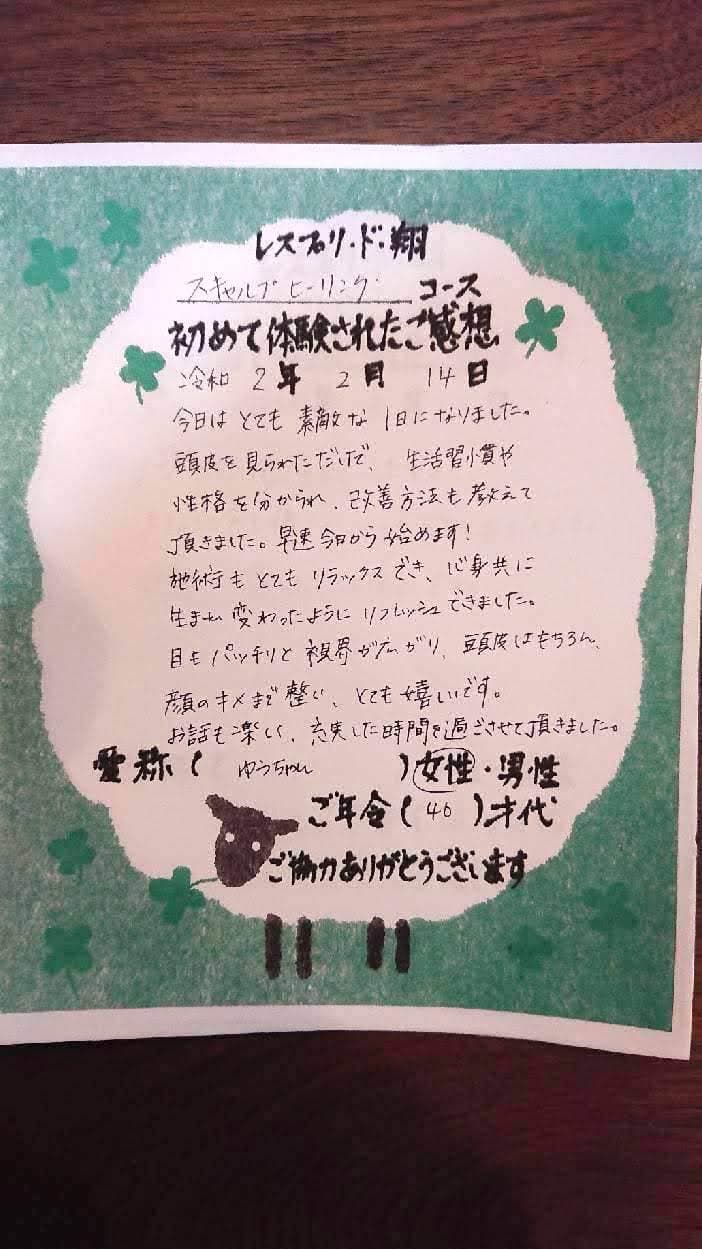 レスプリ・ド・翔
スキャルプヒーリング コース
初めて体験されたご感想
令和 2年 2月 14日
今日はとても素敵な1日になりました。
頭皮を見られただけで、生活習慣や
性格を分かられ、改善方法も教えて
頂きました。早速今日から始めます!
施術もとてもリラックスでき、心身共に
生まれ変わったようにリフレッシュできました。
目もパッチリと視界が広がり、頭皮はもちろん、
顔のキメまで整い、とても嬉しいです。
お話も楽しく、充実した時間を過ごさせて頂きました。
愛称( ゆうちゃん )女性・男性
ご年令(40)才代
ご協力ありがとうございます